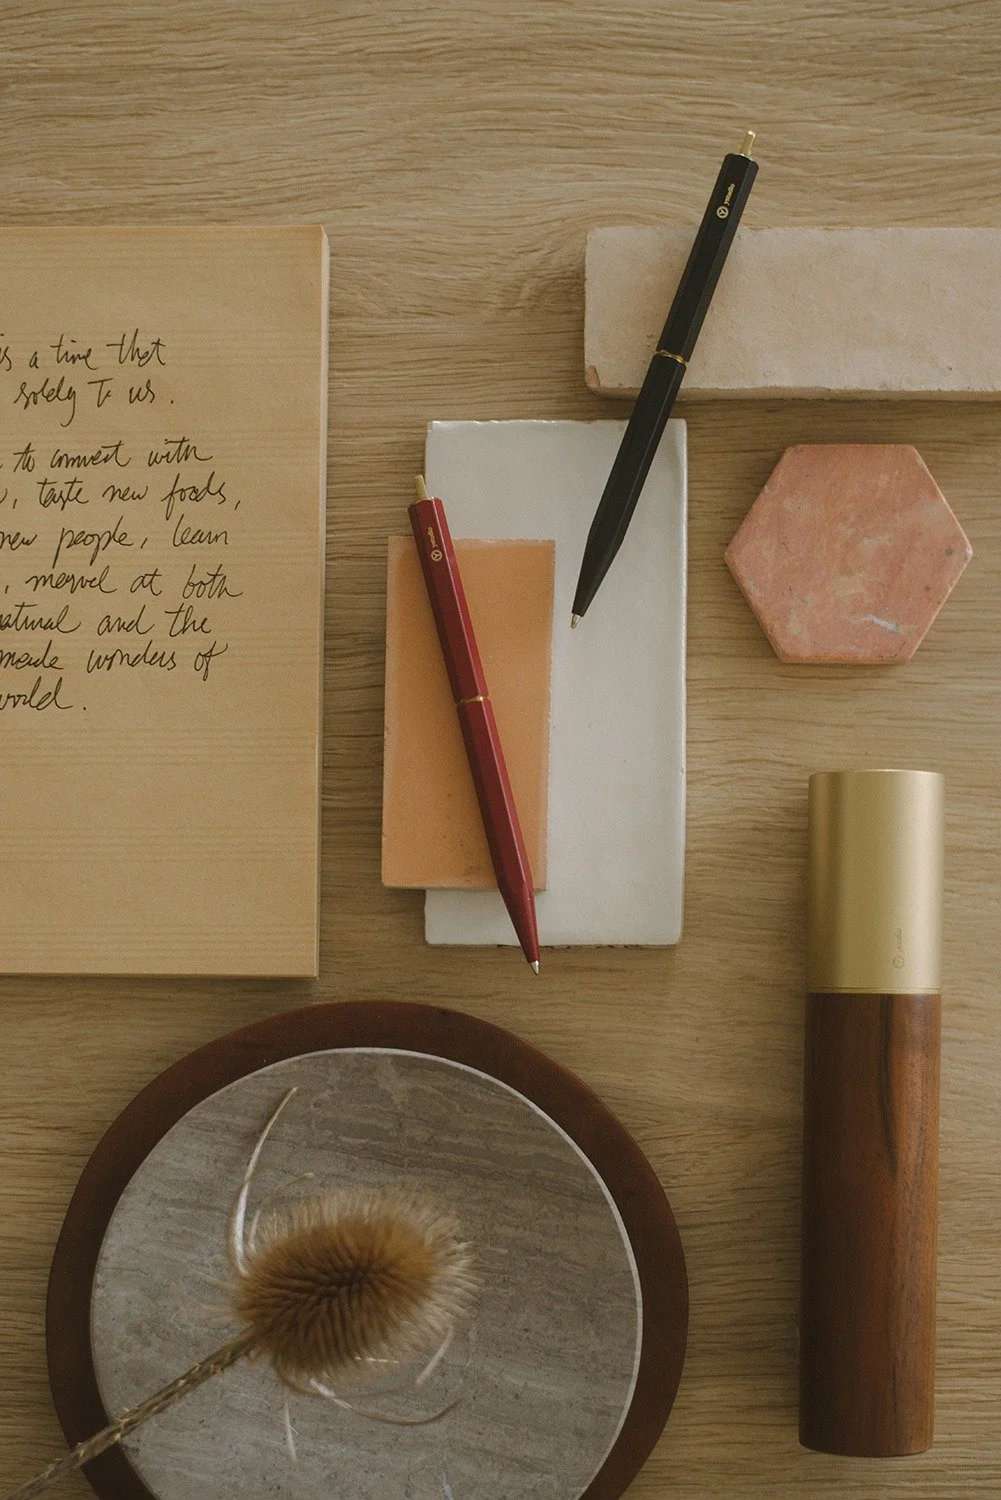 s a time that
solely to us.
to connect with
, taste new foods,
new people, learn
, marvel at both
natural and the
made wonders of
world.
ystudio
ystudio
ystudio